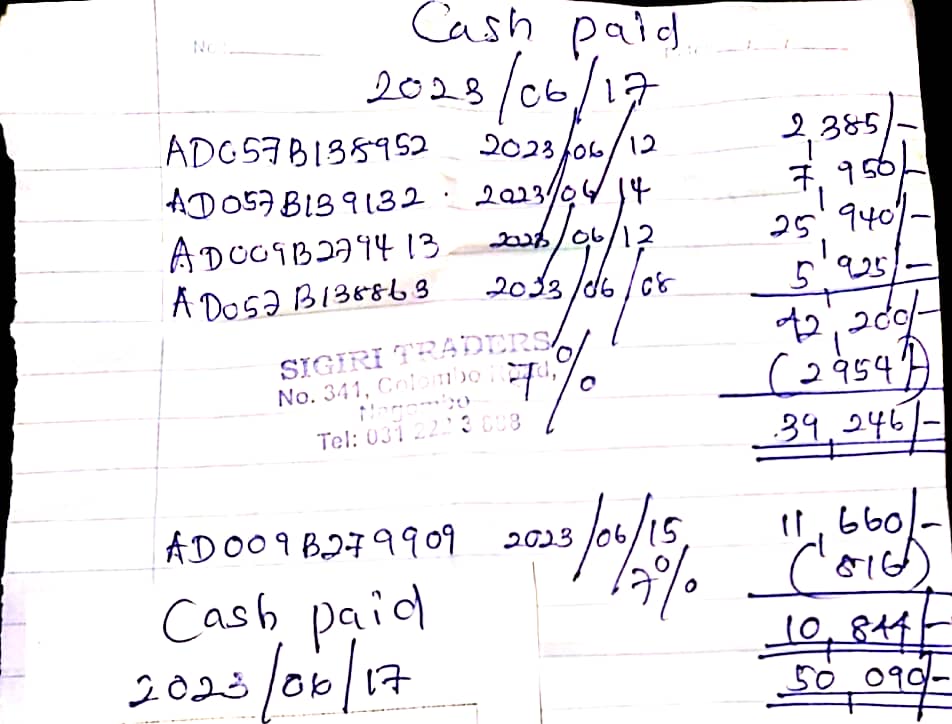 Cash paid
No:
2023/06/17
AD057B138952 2023/06/12 2,385/-
AD057B139132 2023/06/14 7,950/-
AD009B279413 2023/06/12 25,940/-
AD057B138863 2023/06/08 5,925/-
42,200/-
SIGIRI TRADERS
7% (2954/-)
No. 341, Colombo Road,
Negombo
39,246/-
Tel: 031
AD009B279909 2023/06/15 11,660/-
7% (816)
Cash paid
10,844/-
2023/06/17 50,090/-